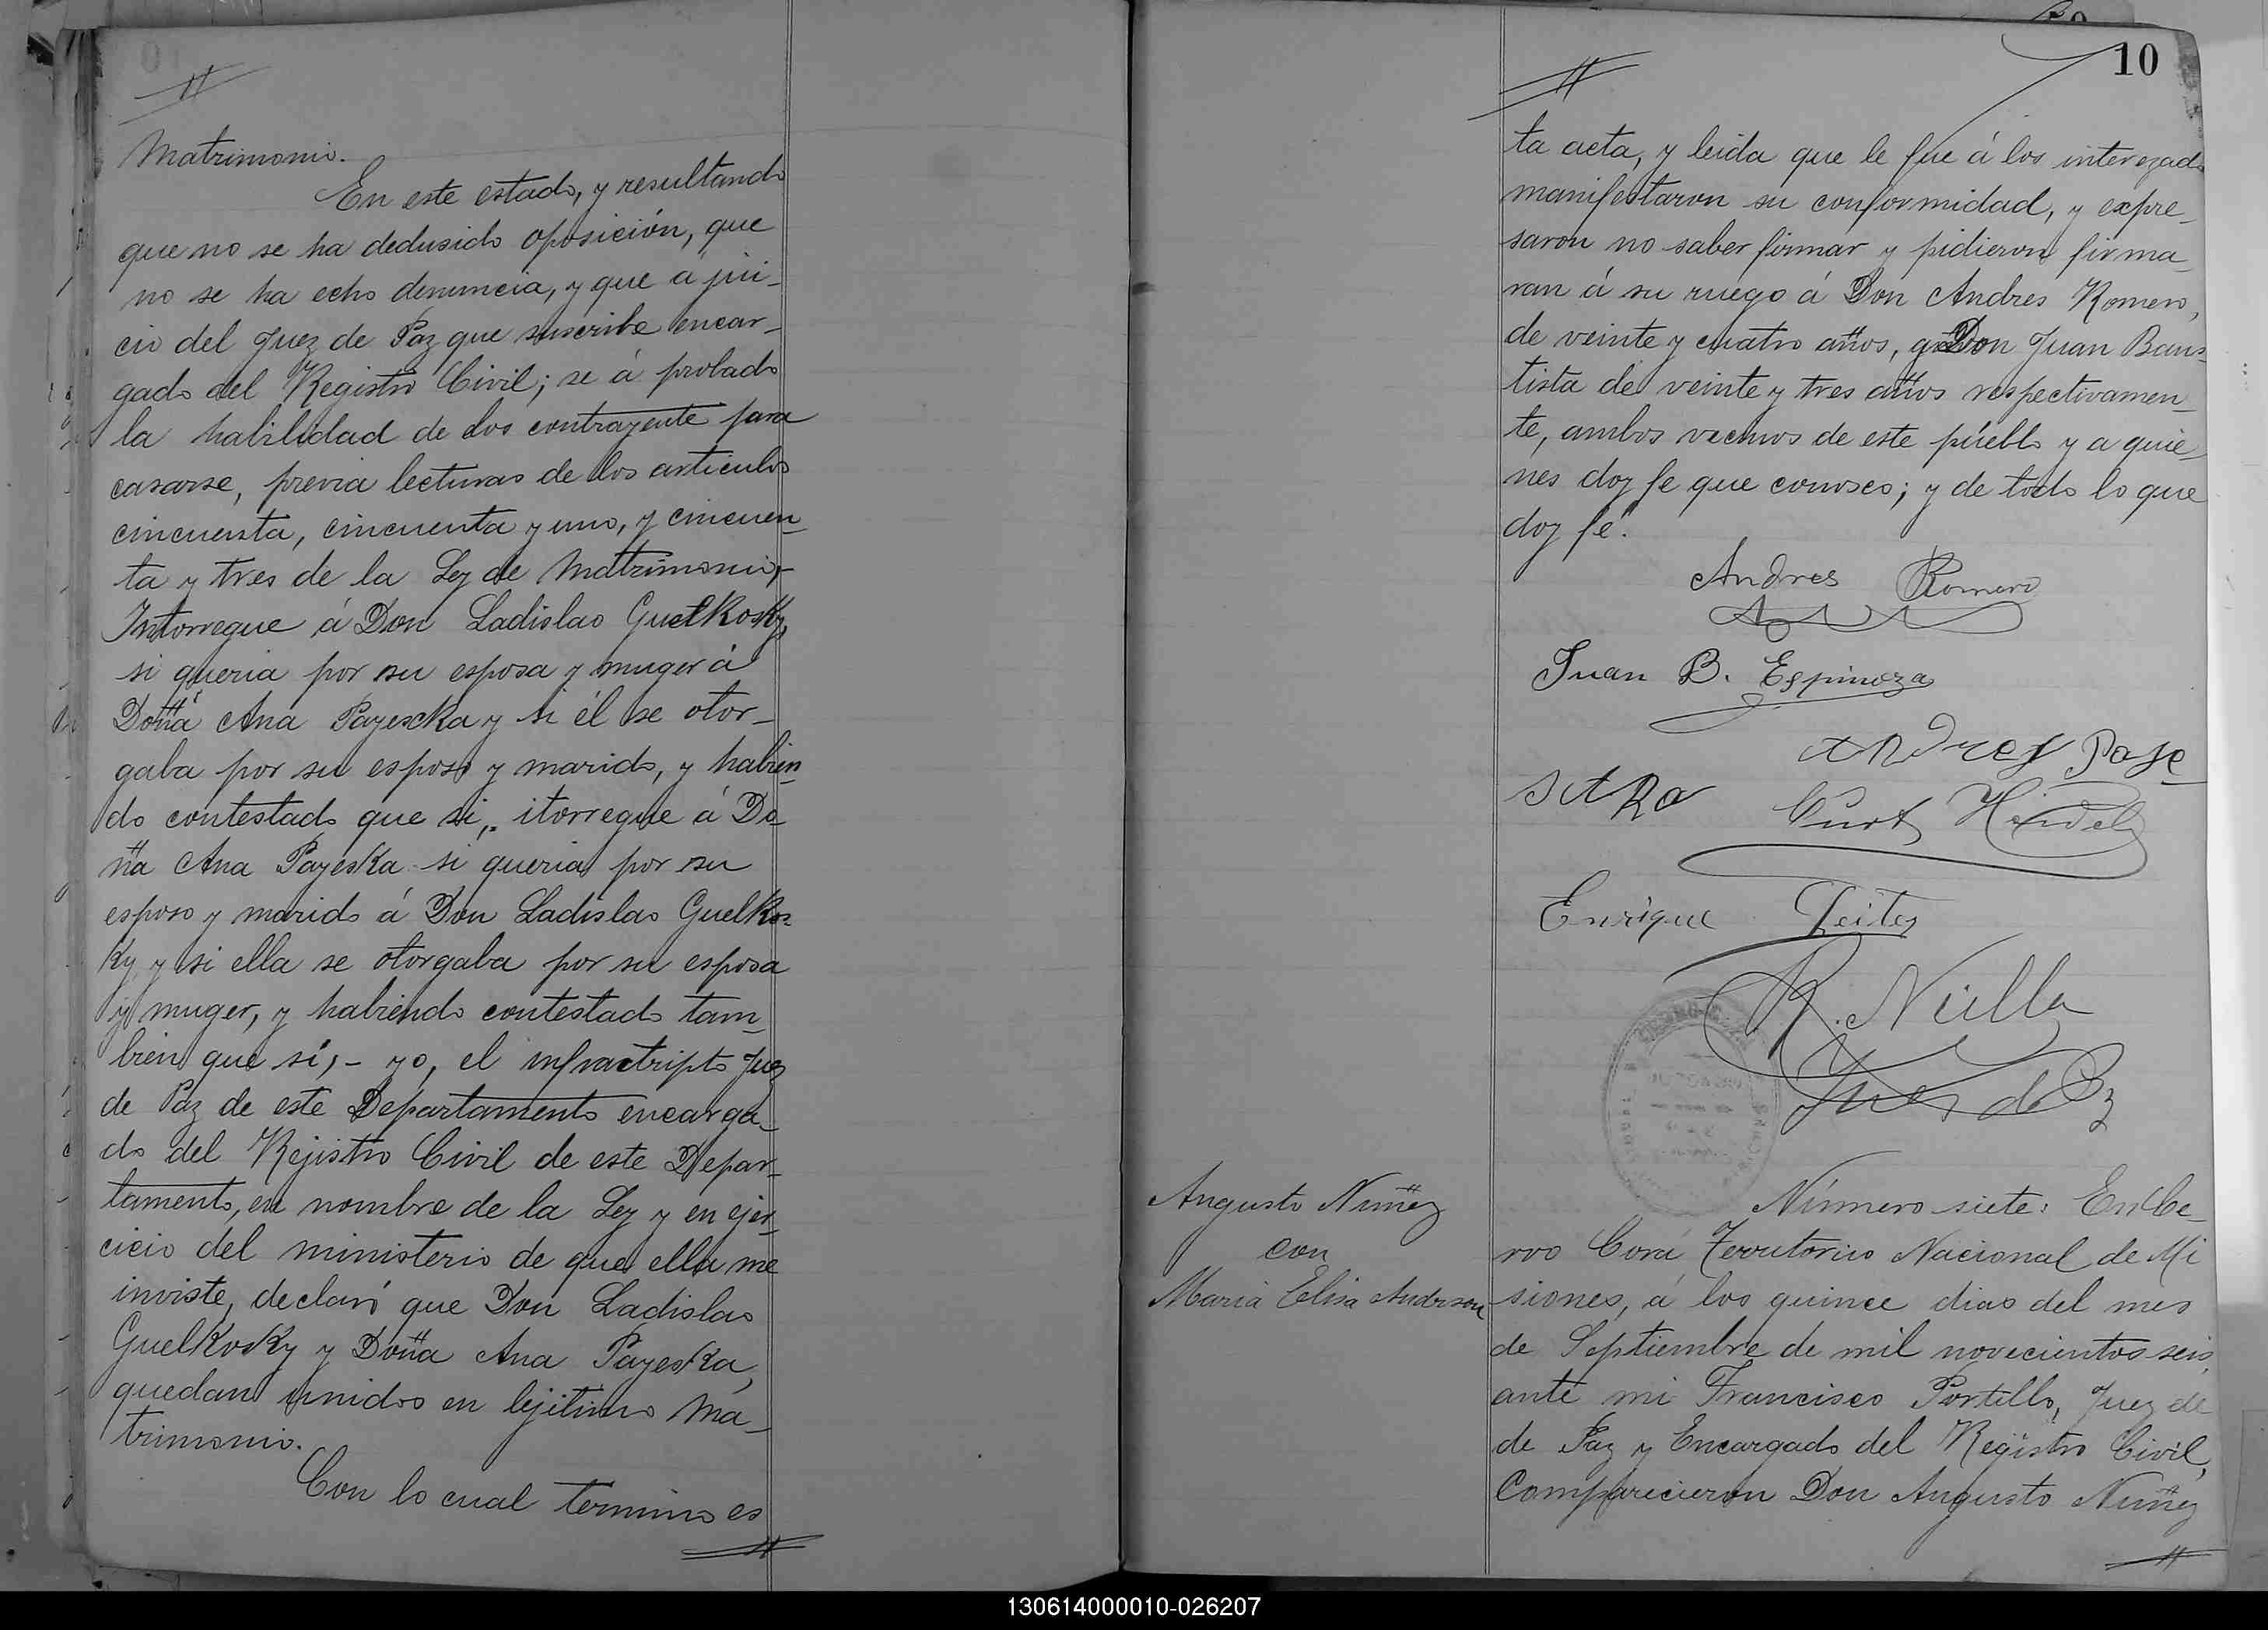 Matrimonio.
En este estado, y resultando
que no se ha dedusido oposición, que
no se ha echo denuncia, y que á jui-
cio del Juez de Paz que suscribe encar-
gado del Registro Civil; se á probado
la habilidad de los contrayente para
casarse, previa lecturas de los articulos
cincuenta, cincuenta y uno, y cincuen-
ta y tres de la Ley de Matrimonio,-
Intorregue á Don Ladislao Guelkosky,
si queria por su esposa y muger á
Doña Ana Payescka y si él se otor-
gaba por su esposo y marido, y habien-
do contestado que si,. itorregue á Do-
ña Ana Payeska si queria por su
esposo y marido á Don Ladislao Guelkos-
ky y si ella se otorgaba por su esposa
y muger, y habiendo contestado tam-
bien que sí,- yo, el infractripto Juez
de Paz de este Departamento encarga-
do del Rejistro Civil de este Depar-
tamento, en nombre de la Ley y en ejer-
cicio del ministerio de que ella me
inviste, declaró que Don Ladislao
Guelkosky y Doña Ana Payeska,
quedan unidos en lejitimo Ma-
trimonio.
Con lo cual termino es
10
ta acta, y leida que le fue á los interezado
manifestaron su conformidad, y expre-
saron no saber firmar y pidieron firma-
ran á su ruego á Don Andres Romero,
de veinte y cuatro años, y Don Juan Baus-
tista de veinte y tres años respectivamen-
te, ambos vecinos de este pueblo y a quie-
nes doy fe que conosco; y de todo lo que
doy fe.
Andres Romero
Juan B. Espinoza
Andres Pose
Curt
Enrique Leites
R. Niella
Juez de Pz
Augusto Nuñez
con
Maria Elisa Anderson
Número siete: En Ce-
rro Corá Territorio Nacional de Mi
siones, á los quince dias del mes
de Septiembre de mil novecientos seis,
ante mi Francisco Portillo, Juez de
de Paz y Encargado del Registro Civil,
Comparecieron Don Augusto Nuñez
130614000010-026207